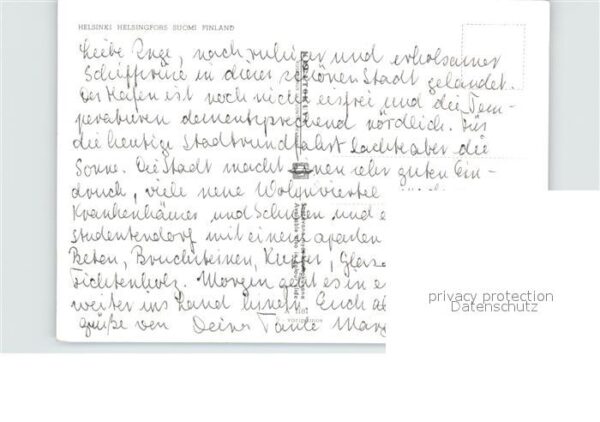 HELSINKI HELSINGFORS SUOMI FINLAND
Liebe Inge, nach ruhiger und erholsamer
Schiffreise in dieser schönen Stadt gelandet.
Der Hafen ist noch nicht eisfrei und die Tem-
peraturen dementsprechend nördlich. Für
die heutige Stadtrundfahrt lachte aber die
Sonne. Die Stadt macht einen sehr guten Ein-
druck, viele neue Wohnviertel
Krankenhäuser und Schulen und
Studentendorf mit einem aparten
Beton, Bruchsteinen, Kupfer, Glas
Fichtenholz. Morgen geht es in
weiter ins Land hinein. Euch
grüße von Deine Tante
A 1181
privacy protection
Datenschutz